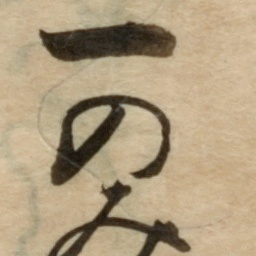 一のみ